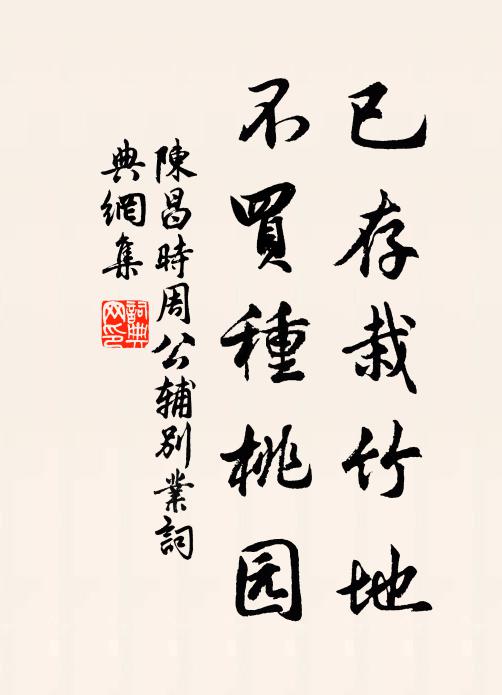 已存栽竹地
不買種桃园
陳昌時周公辅别業詞
典網集
詞典
网印